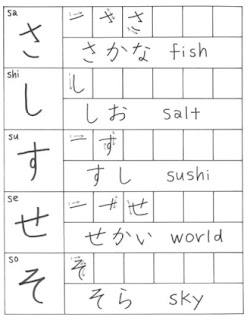 sa
さ
一 さ さ
さかな fish
shi
し
し
しお salt
su
す
一 す
すし sushi
se
せ
一 ナ せ
せかい world
so
そ
そ
そら sky